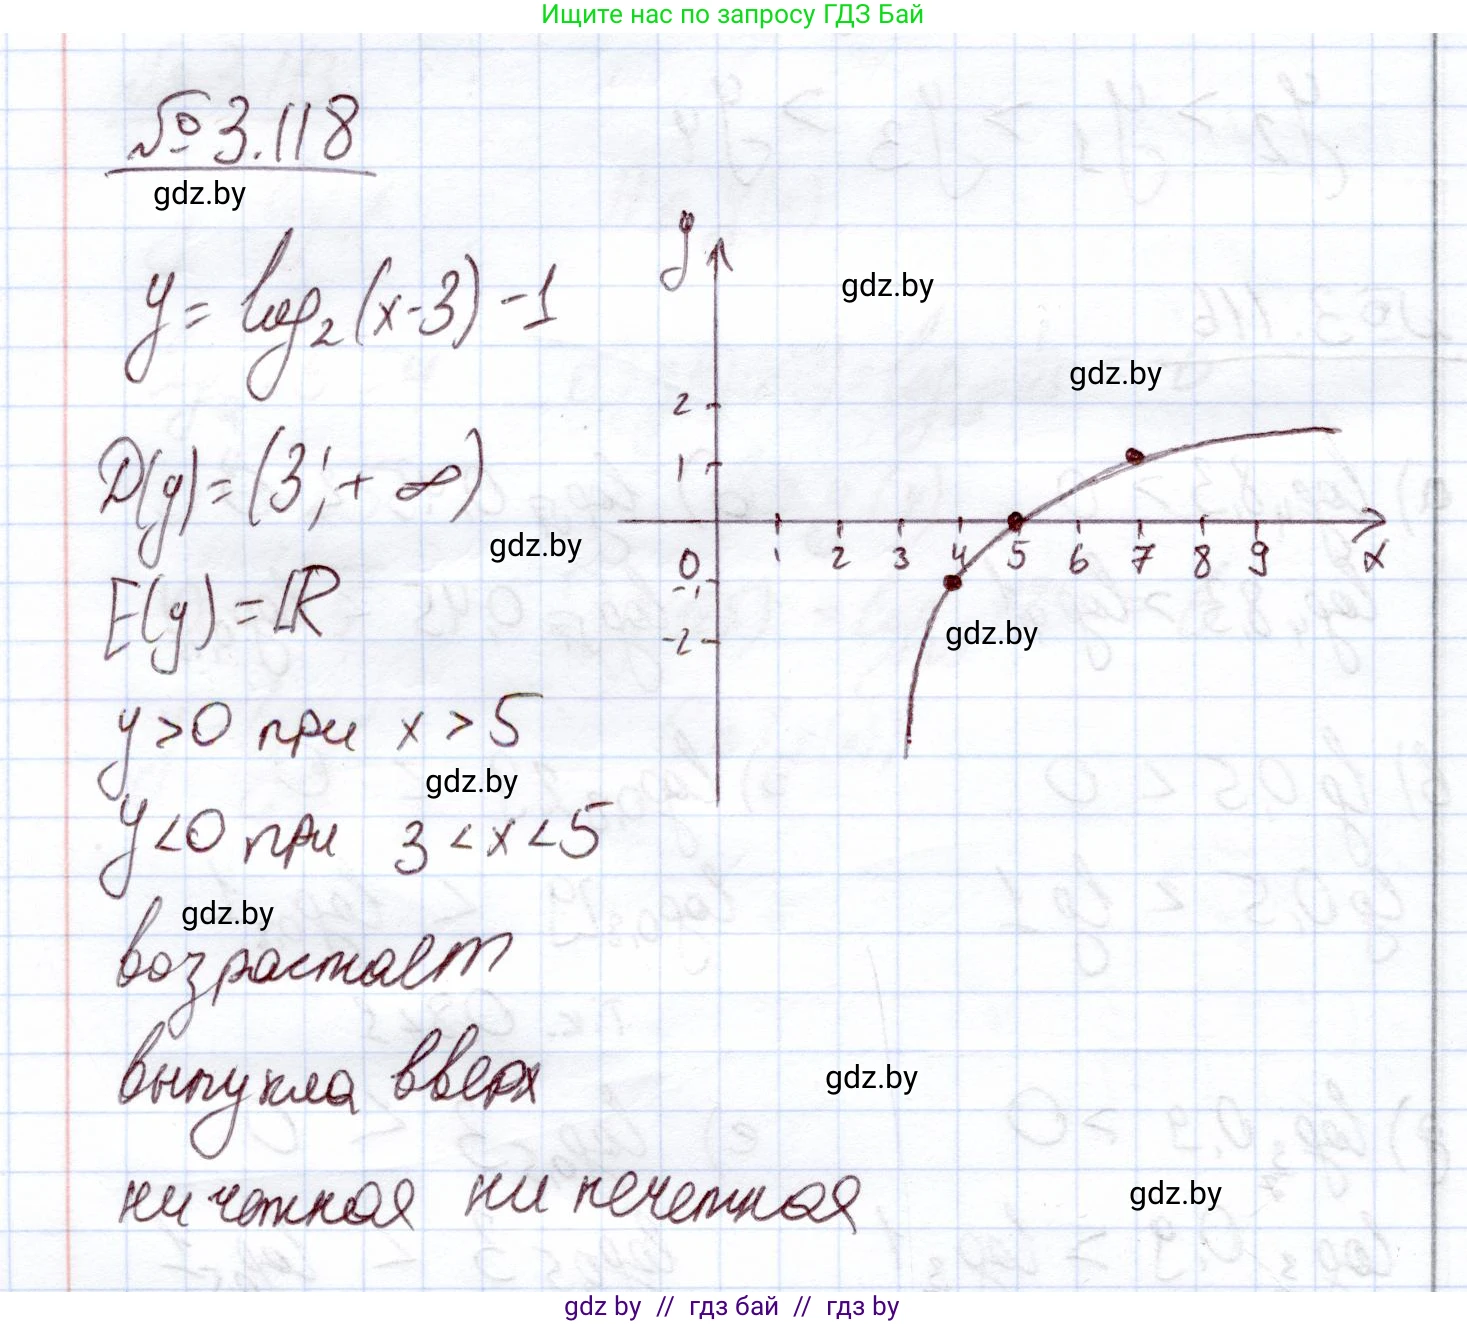 Ищите нас по запросу ГДЗ Бай
№ 3.118
gdz.by
y = log₂(x-3) -1
gdz.by
gdz.by
D(y) = (3; + ∞)
gdz.by
E(y) = ℝ
y > 0 при x > 5
gdz.by
y < 0 при 3 < x < 5
gdz.by
возрастает
выпукла вверх
gdz.by
ни четная ни нечетная
gdz.by
y
2
1
0 1 2 3 4 5 6 7 8 9 x
-1
-2
gdz.by
gdz by // гдз бай // гдз by